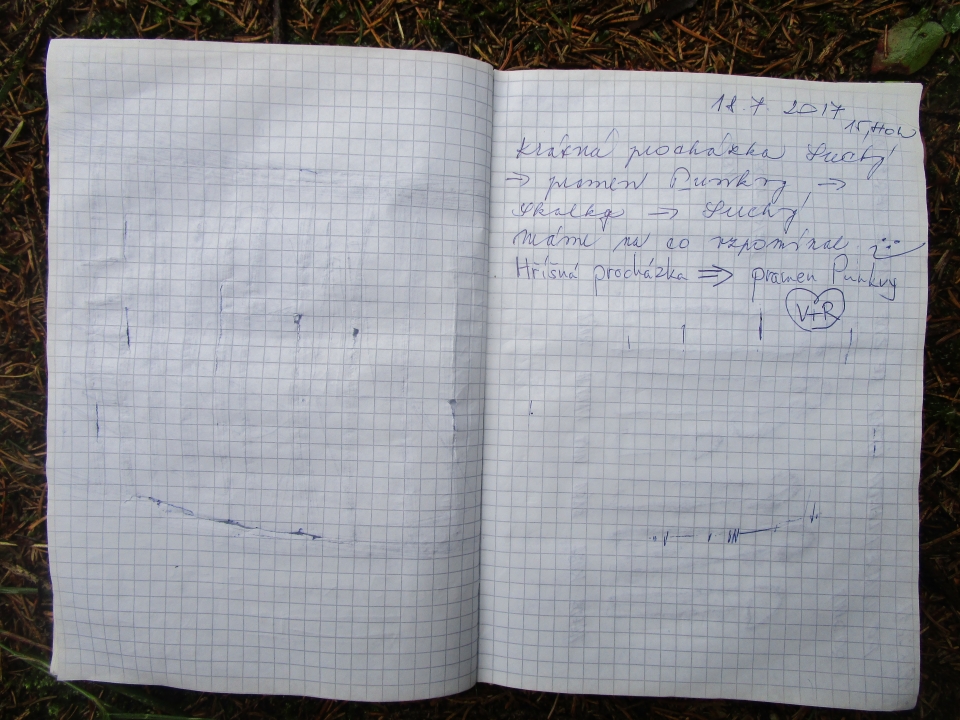 18.7. 2017
15,40h
Krásná procházka Suchý
→ pramen Punkvy →
Skalky → Suchý
Máme na co vzpomínat
Hříšná procházka ⇒ pramen Punkvy
V+R